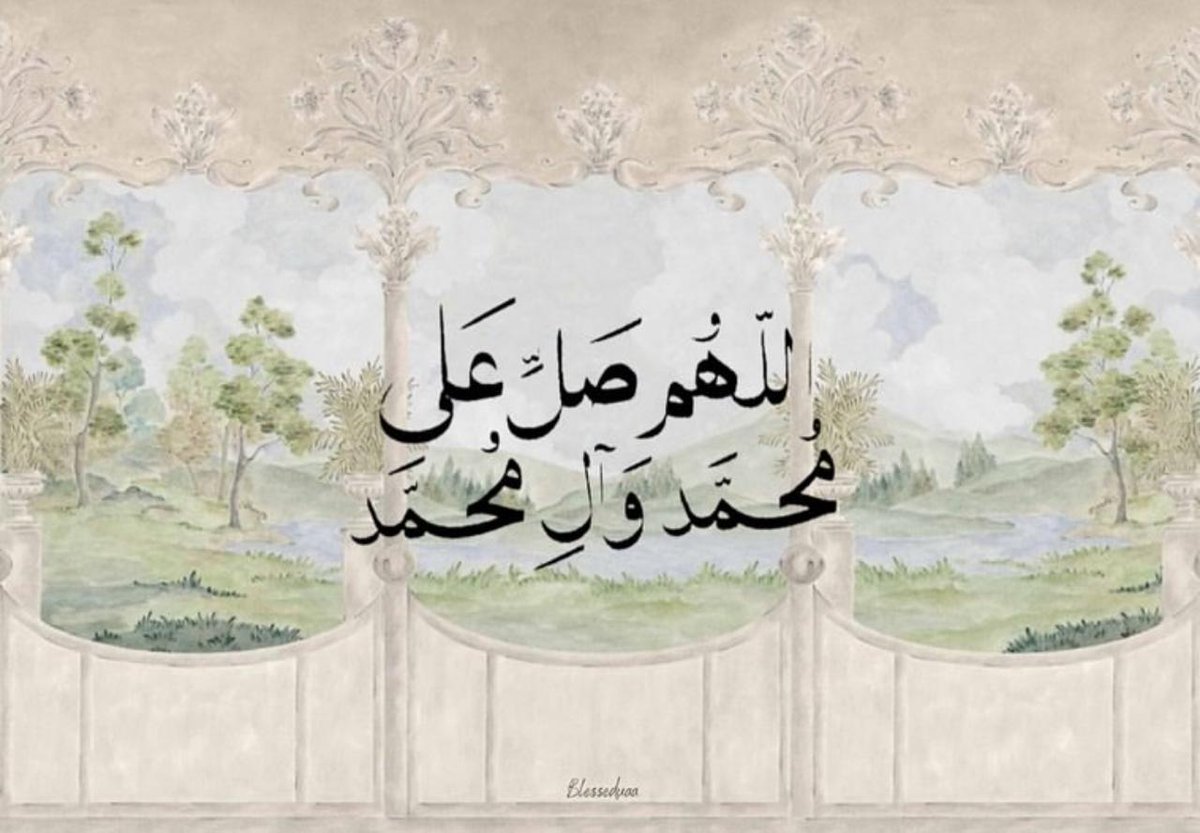 اللّهُم صَلِّ عَلى
مُحمَّد وَآلِ مُحمَّد
Blesseduaa